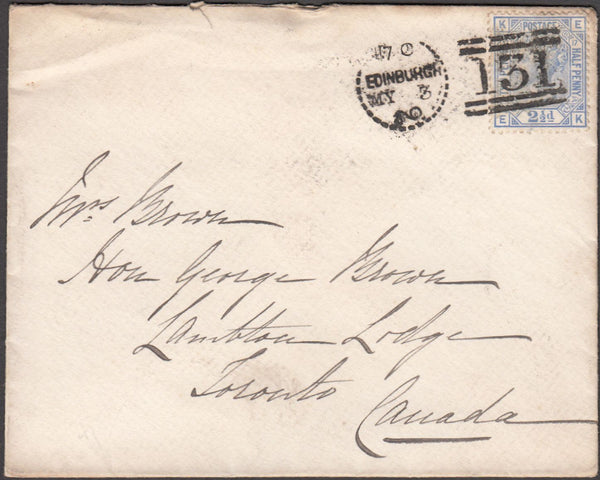 EDINBURGH
MY 3
80
131
K E
POSTAGE
HALF PENNY
E 2½d K
Mrs Brown
Hon George Brown
Lambton Lodge
Toronto
Canada